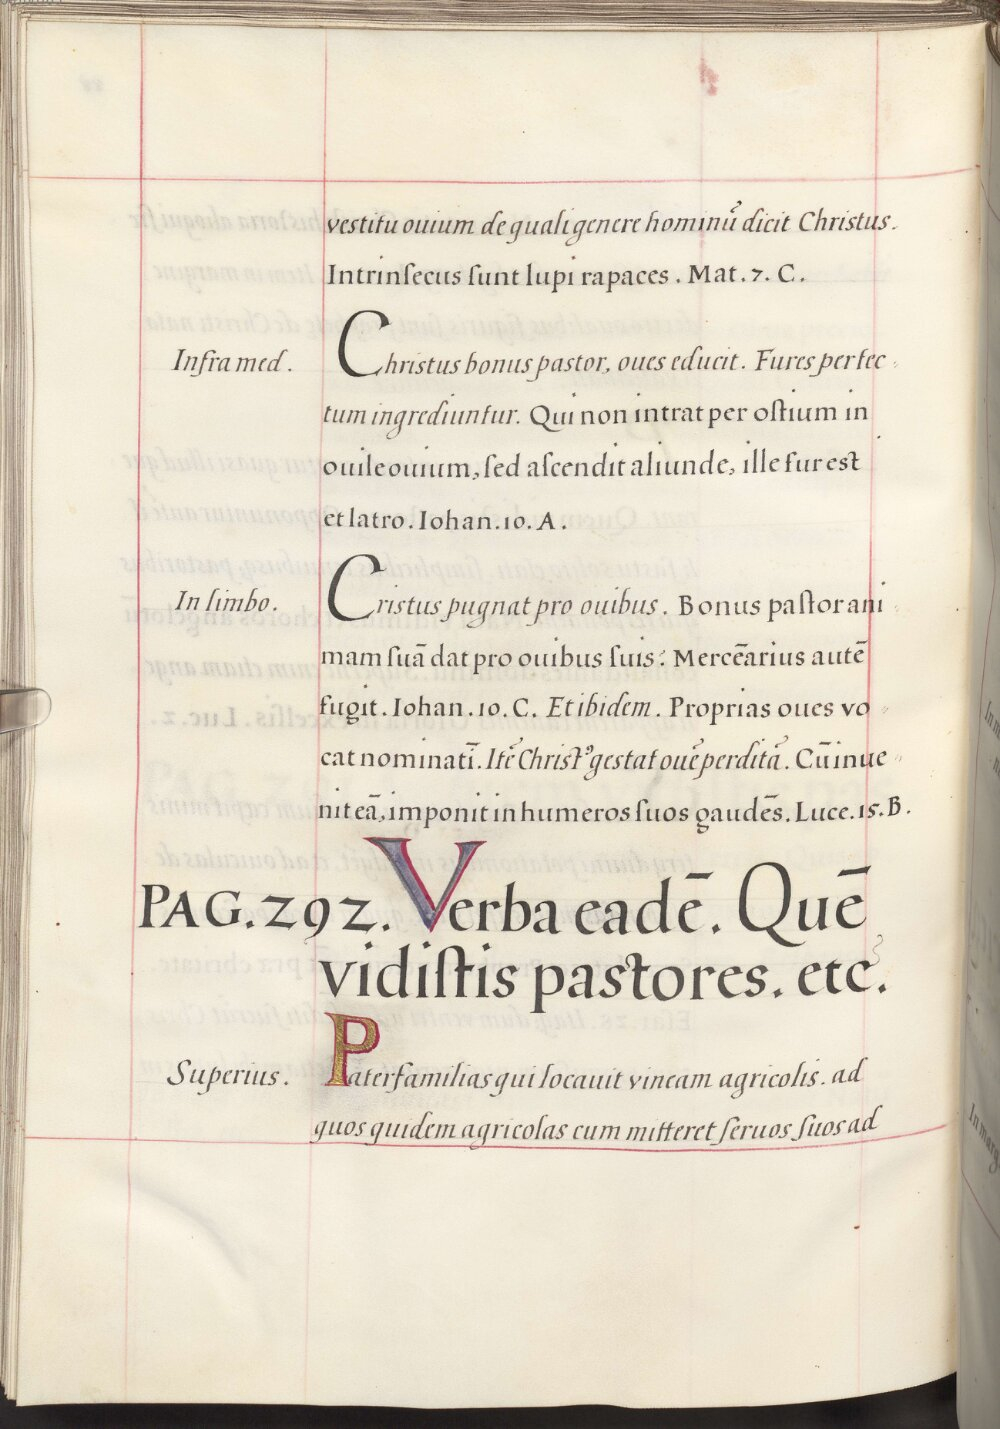 vestitu ouium de quali genere hominū dicit Christus.
Intrinſecus ſunt lupi rapaces. Mat. 7. C.
Infra med. Christus bonus pastor, oues educit. Fures per tec-
tum ingrediuntur. Qui non intrat per oſtium in
ouile ouium, ſed aſcendit aliunde, ille fur est
et latro. Iohan. 10. A.
In limbo. Cristus pugnat pro ouibus. Bonus paſtor ani
mam ſuā dat pro ouibus ſuis: Mercēarius autē
fugit. Iohan. 10. C. Et ibidem. Proprias oues vo
cat nominatī. Itē Christꝰ gestat ouē perditā. Cū inue-
nit eā, imponit in humeros ſuos gaudēs. Luce. 15. B.
PAG. 292. Verba eadē. Quē
vidiſtis pastores. etc.
Superius. Paterfamilias qui locauit vineam agricolis. ad
quos quidem agricolas cum mitteret ſeruos ſuos ad